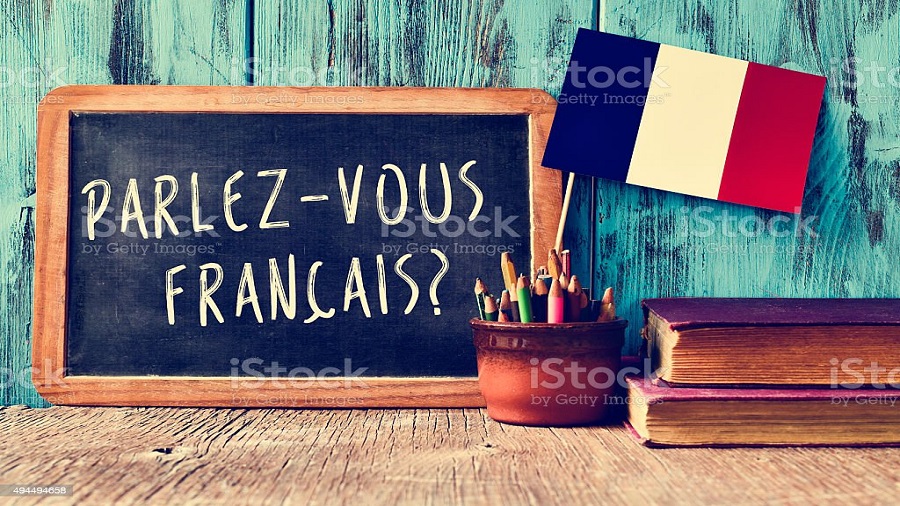 PARLEZ-VOUS
FRANÇAIS?
iStock
by Getty Images
494494658